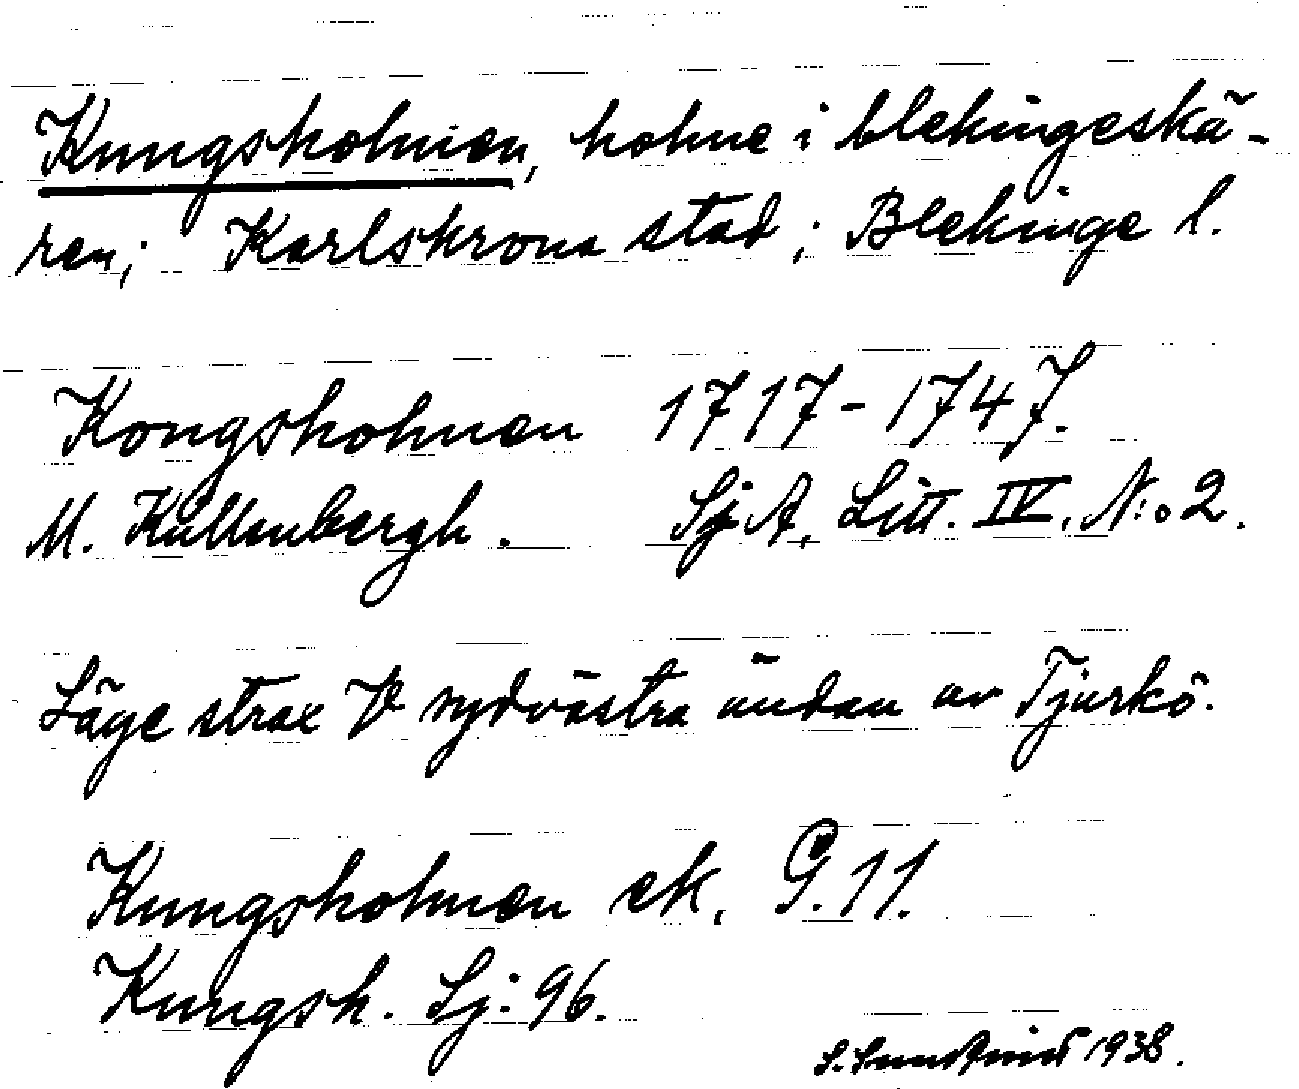 Kungsholmen, holme i blekingeskä-
ren; Karlskrona stad; Blekinge l.
Kongsholmen 1717-1747.
M. Kullenbergh. SjA, Litt. IV, N:o 2.
Läge strax V sydvästra ändan av Tjurkö.
Kungsholmen ek. G. 11.
Kungsh. Sj: 96.
S. 1938.